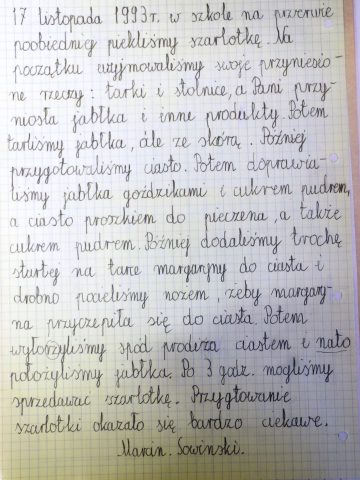 17 listopada 1993r. w szkole na przerwie
poobiedniej piekliśmy szarlotkę. Na
początku wyjmowaliśmy swoje przyniesio-
ne rzeczy: tarki i stolnice, a Pani przy-
niosła jabłka i inne produkty. Potem
tarliśmy jabłka, ale ze skórą. Później
przygotowaliśmy ciasto. Potem doprawia-
liśmy jabłka goździkami i cukrem pudrem,
a ciasto proszkiem do pieczena, a także
cukrem pudrem. Później dodaliśmy trochę
startej na tarce margaryny do ciasta i
drobno pocieliśmy nożem, żeby margary-
na przyczepiła się do ciasta. Potem
wyłożyliśmy spód prodiża ciastem i nato
położyliśmy jabłka. Po 3 godz. mogliśmy
sprzedawać szarlotkę. Przygotowanie
szarlotki okazało się bardzo ciekawe.
Marcin. Sowiński.